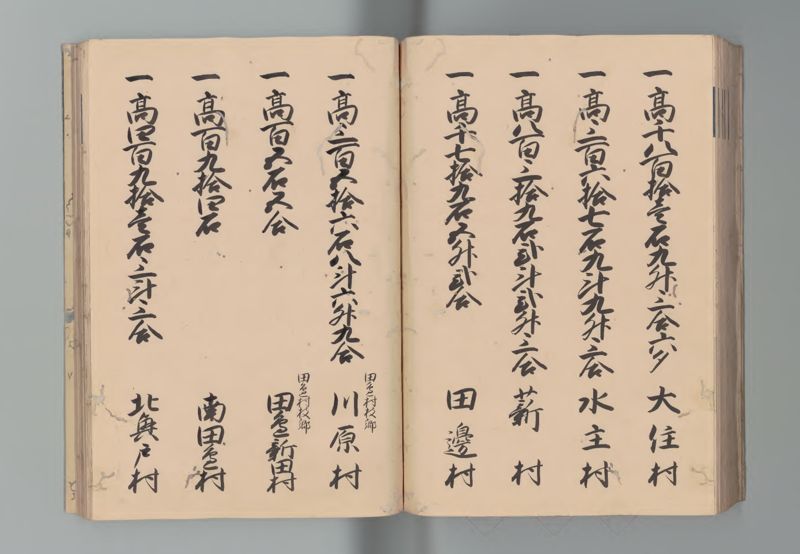 一高千八百拾壱石九升三合六夕 大住村
一高三百六拾七石九斗九升三合 水主村
一高八百三拾九石弐斗弐升三合 薪村
一高千七拾九石五升弐合 田邊村
田邊村枝郷
一高三百五拾六石八斗六升九合 川原村
田邊村枝郷
一高百五石五合 田邊新田村
一高百九拾四石 南田邊村
一高四百九拾壱石三斗三合 北興戸村